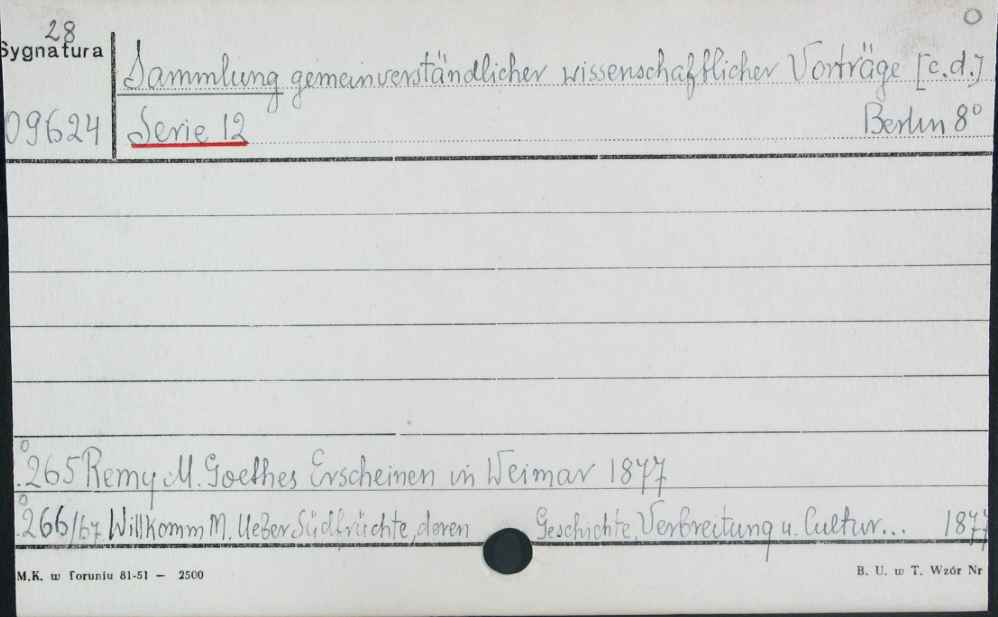 28
Sygnatura
Sammlung gemeinverständlicher wissenschaftlicher Vorträge [c.d.]
09624 Serie 12 Berlin 8°
265 Remy M. Goethes Erscheinen in Weimar 1877
266/67 Willkomm M. Ueber Südfrüchte, deren Geschichte, Verbreitung u. Cultur... 1877
M.K. w Toruniu 81-51 — 2500 B. U. w T. Wzór Nr